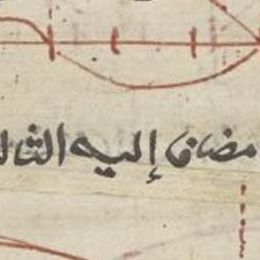 مضاف إليه الثال